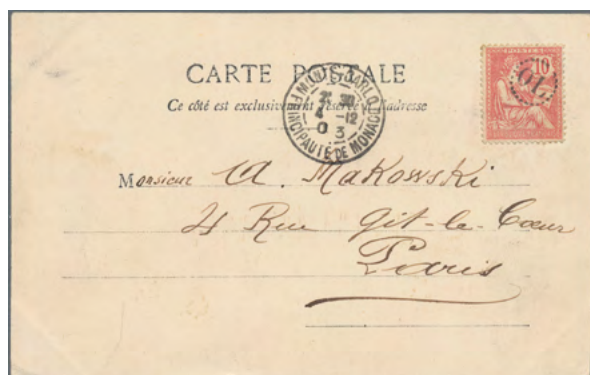 CARTE POSTALE
Ce côté est exclusivement réservé à l'adresse
MONTE-CARLO
PRINCIPAUTÉ DE MONACO
4 -12
03
POSTES
10
OL
Monsieur A. Makowski
21 Rue Git-le-Cœur
Paris